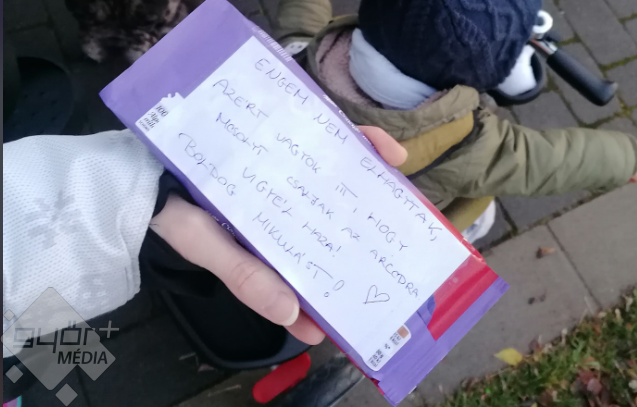 ENGEM NEM ELHAGYTAK,
AZÉRT VAGYOK ITT, HOGY
MOSOLYT CSALJAK AZ ARCODRA
VIGYÉL HAZA!
BOLDOG MIKULÁST! ♡
győr+
MÉDIA